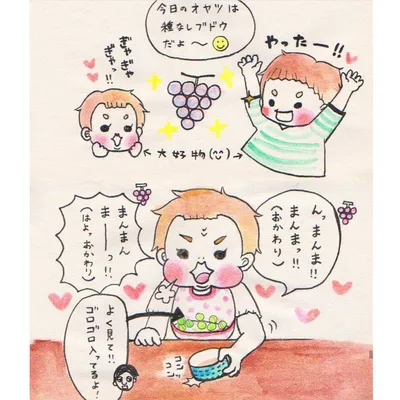 今日のオヤツは
種なしブドウ
だよ〜
やったー!!
ぎゃぎゃ
ぎゃっ!!
←大好物(')→
んっまんま!!
まんまっ!!
(おかわり)
まんまん
まーっ!!
(はよっ、おかわり)
よく見て!!
ゴロゴロ入ってるよ!
コンッ
コンッ